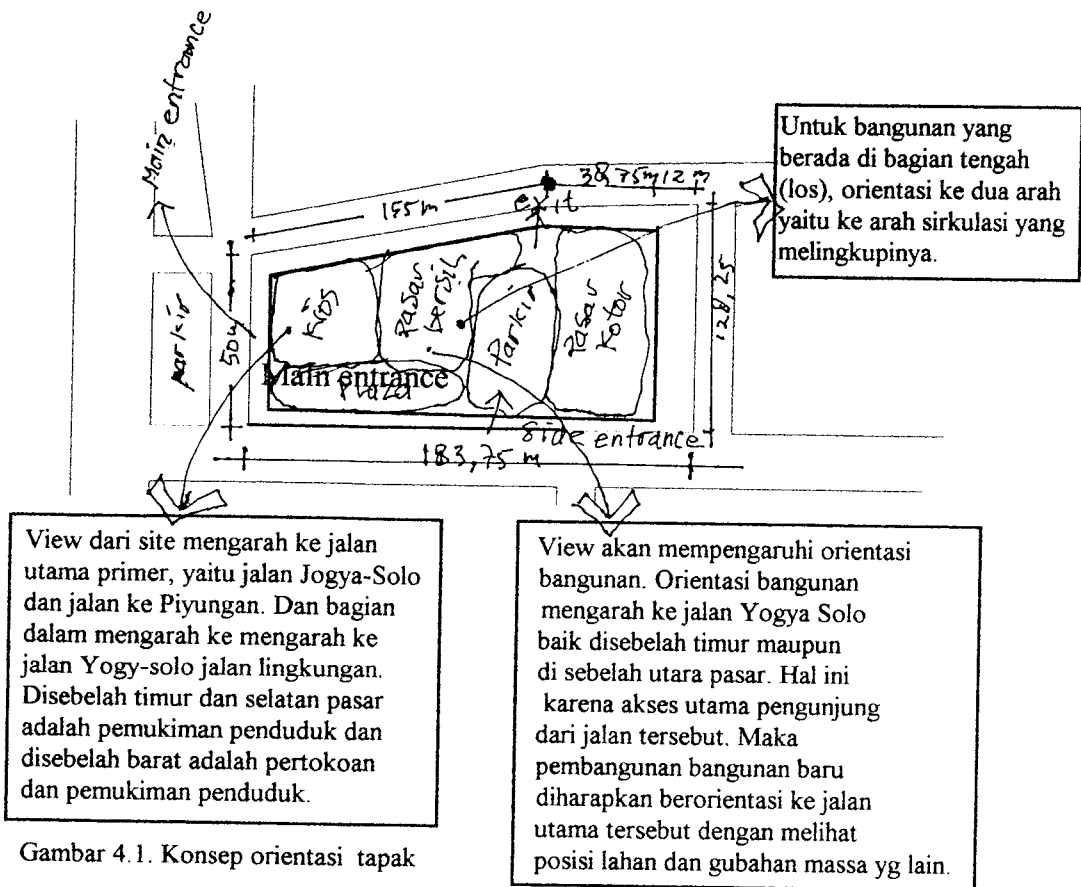 Main entrance
Untuk bangunan yang
berada di bagian tengah
(los), orientasi ke dua arah
yaitu ke arah sirkulasi yang
melingkupinya.
155 m
38,75 m
12 m
exit
128,25
parkir
50 m
Kios
Pasar
bersih
Parkir
Pasar
Kotor
Main entrance
Plaza
Side entrance
183,75 m
View dari site mengarah ke jalan
utama primer, yaitu jalan Jogya-Solo
dan jalan ke Piyungan. Dan bagian
dalam mengarah ke mengarah ke
jalan Yogy-solo jalan lingkungan.
Disebelah timur dan selatan pasar
adalah pemukiman penduduk dan
disebelah barat adalah pertokoan
dan pemukiman penduduk.
View akan mempengaruhi orientasi
bangunan. Orientasi bangunan
mengarah ke jalan Yogya Solo
baik disebelah timur maupun
di sebelah utara pasar. Hal ini
karena akses utama pengunjung
dari jalan tersebut. Maka
pembangunan bangunan baru
diharapkan berorientasi ke jalan
utama tersebut dengan melihat
posisi lahan dan gubahan massa yg lain.
Gambar 4.1. Konsep orientasi tapak